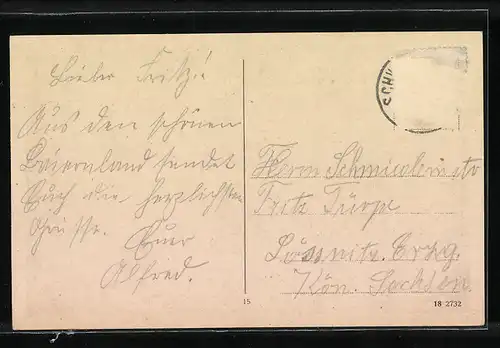 Lieber Fritz!
Aus den schönen
Baiernland sendet
Euch die herzlichsten
Grüsse. Euer
Alfred.
SCH
Herrn Schmiedemstr
Fritz Türpe
Lössnitz. Erzg.
Kön. Sachsen
15
18 2732